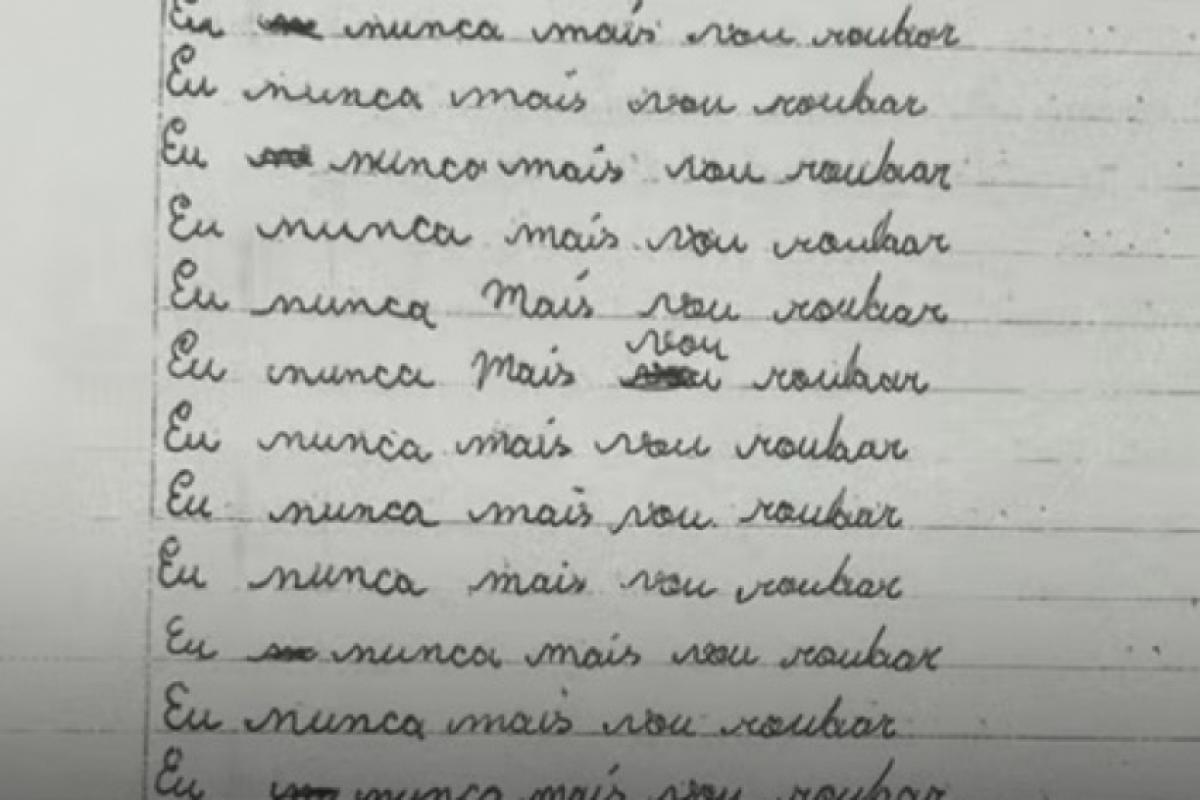 Eu nunca mais vou roubar
Eu nunca mais vou roubar
Eu nunca mais vou roubar
Eu nunca mais vou roubar
Eu nunca Mais vou roubar
Eu nunca Mais vou roubar
Eu nunca mais vou roubar
Eu nunca mais vou roubar
Eu nunca mais vou roubar
Eu nunca mais vou roubar
Eu nunca mais vou roubar
Eu nunca mais vou roubar